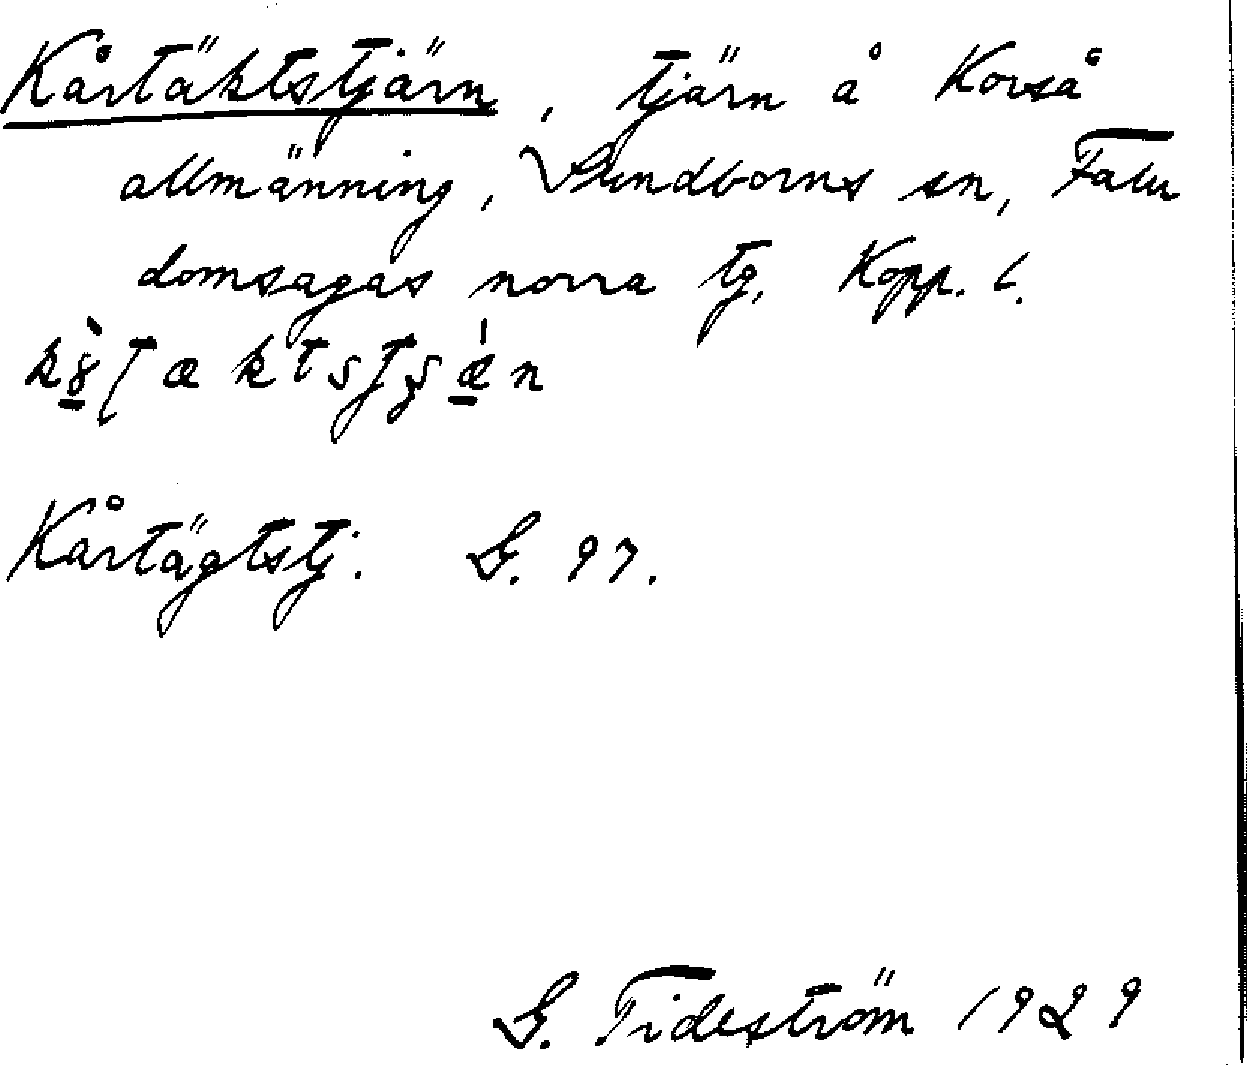 Kårtäktstjärn, tjärn å Korså
allmänning, Sundborns sn, Falu
domsagas norra tg, Kopp. l.
Kårtägtstj. G. 97.
G. Tideström 1929